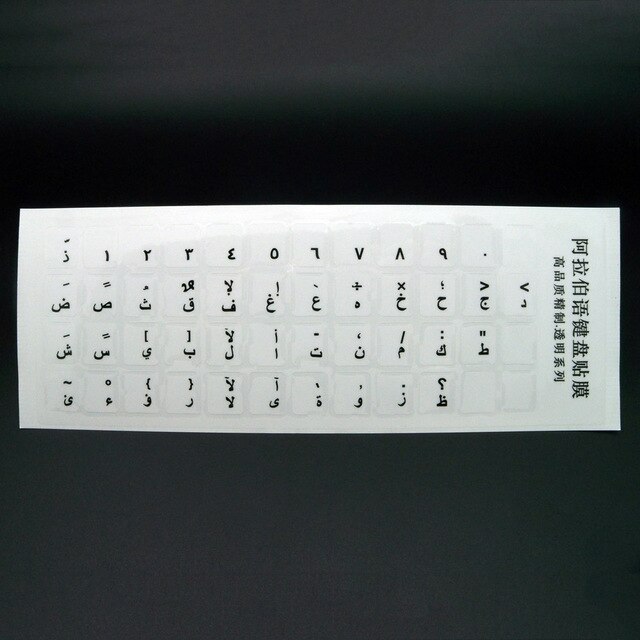 ذّ ١ ٢ ٣ ٤ ٥ ٦ ٧ ٨ ٩ ٠
َ ً ُ ٌ لإ إ ÷ × ؛
ض ص ث ق ف غ ع ه خ ح ج د
ِ ٍ ] [ لأ أ ـ ، / : "
ش س ي ب ل ا ت ن م ك ط
~ ْ } { لآ آ ' , . ؟
ئ ء ؤ ر لا ى ة و ز ظ
阿拉伯语键盘贴膜
高品质精制.透明系列